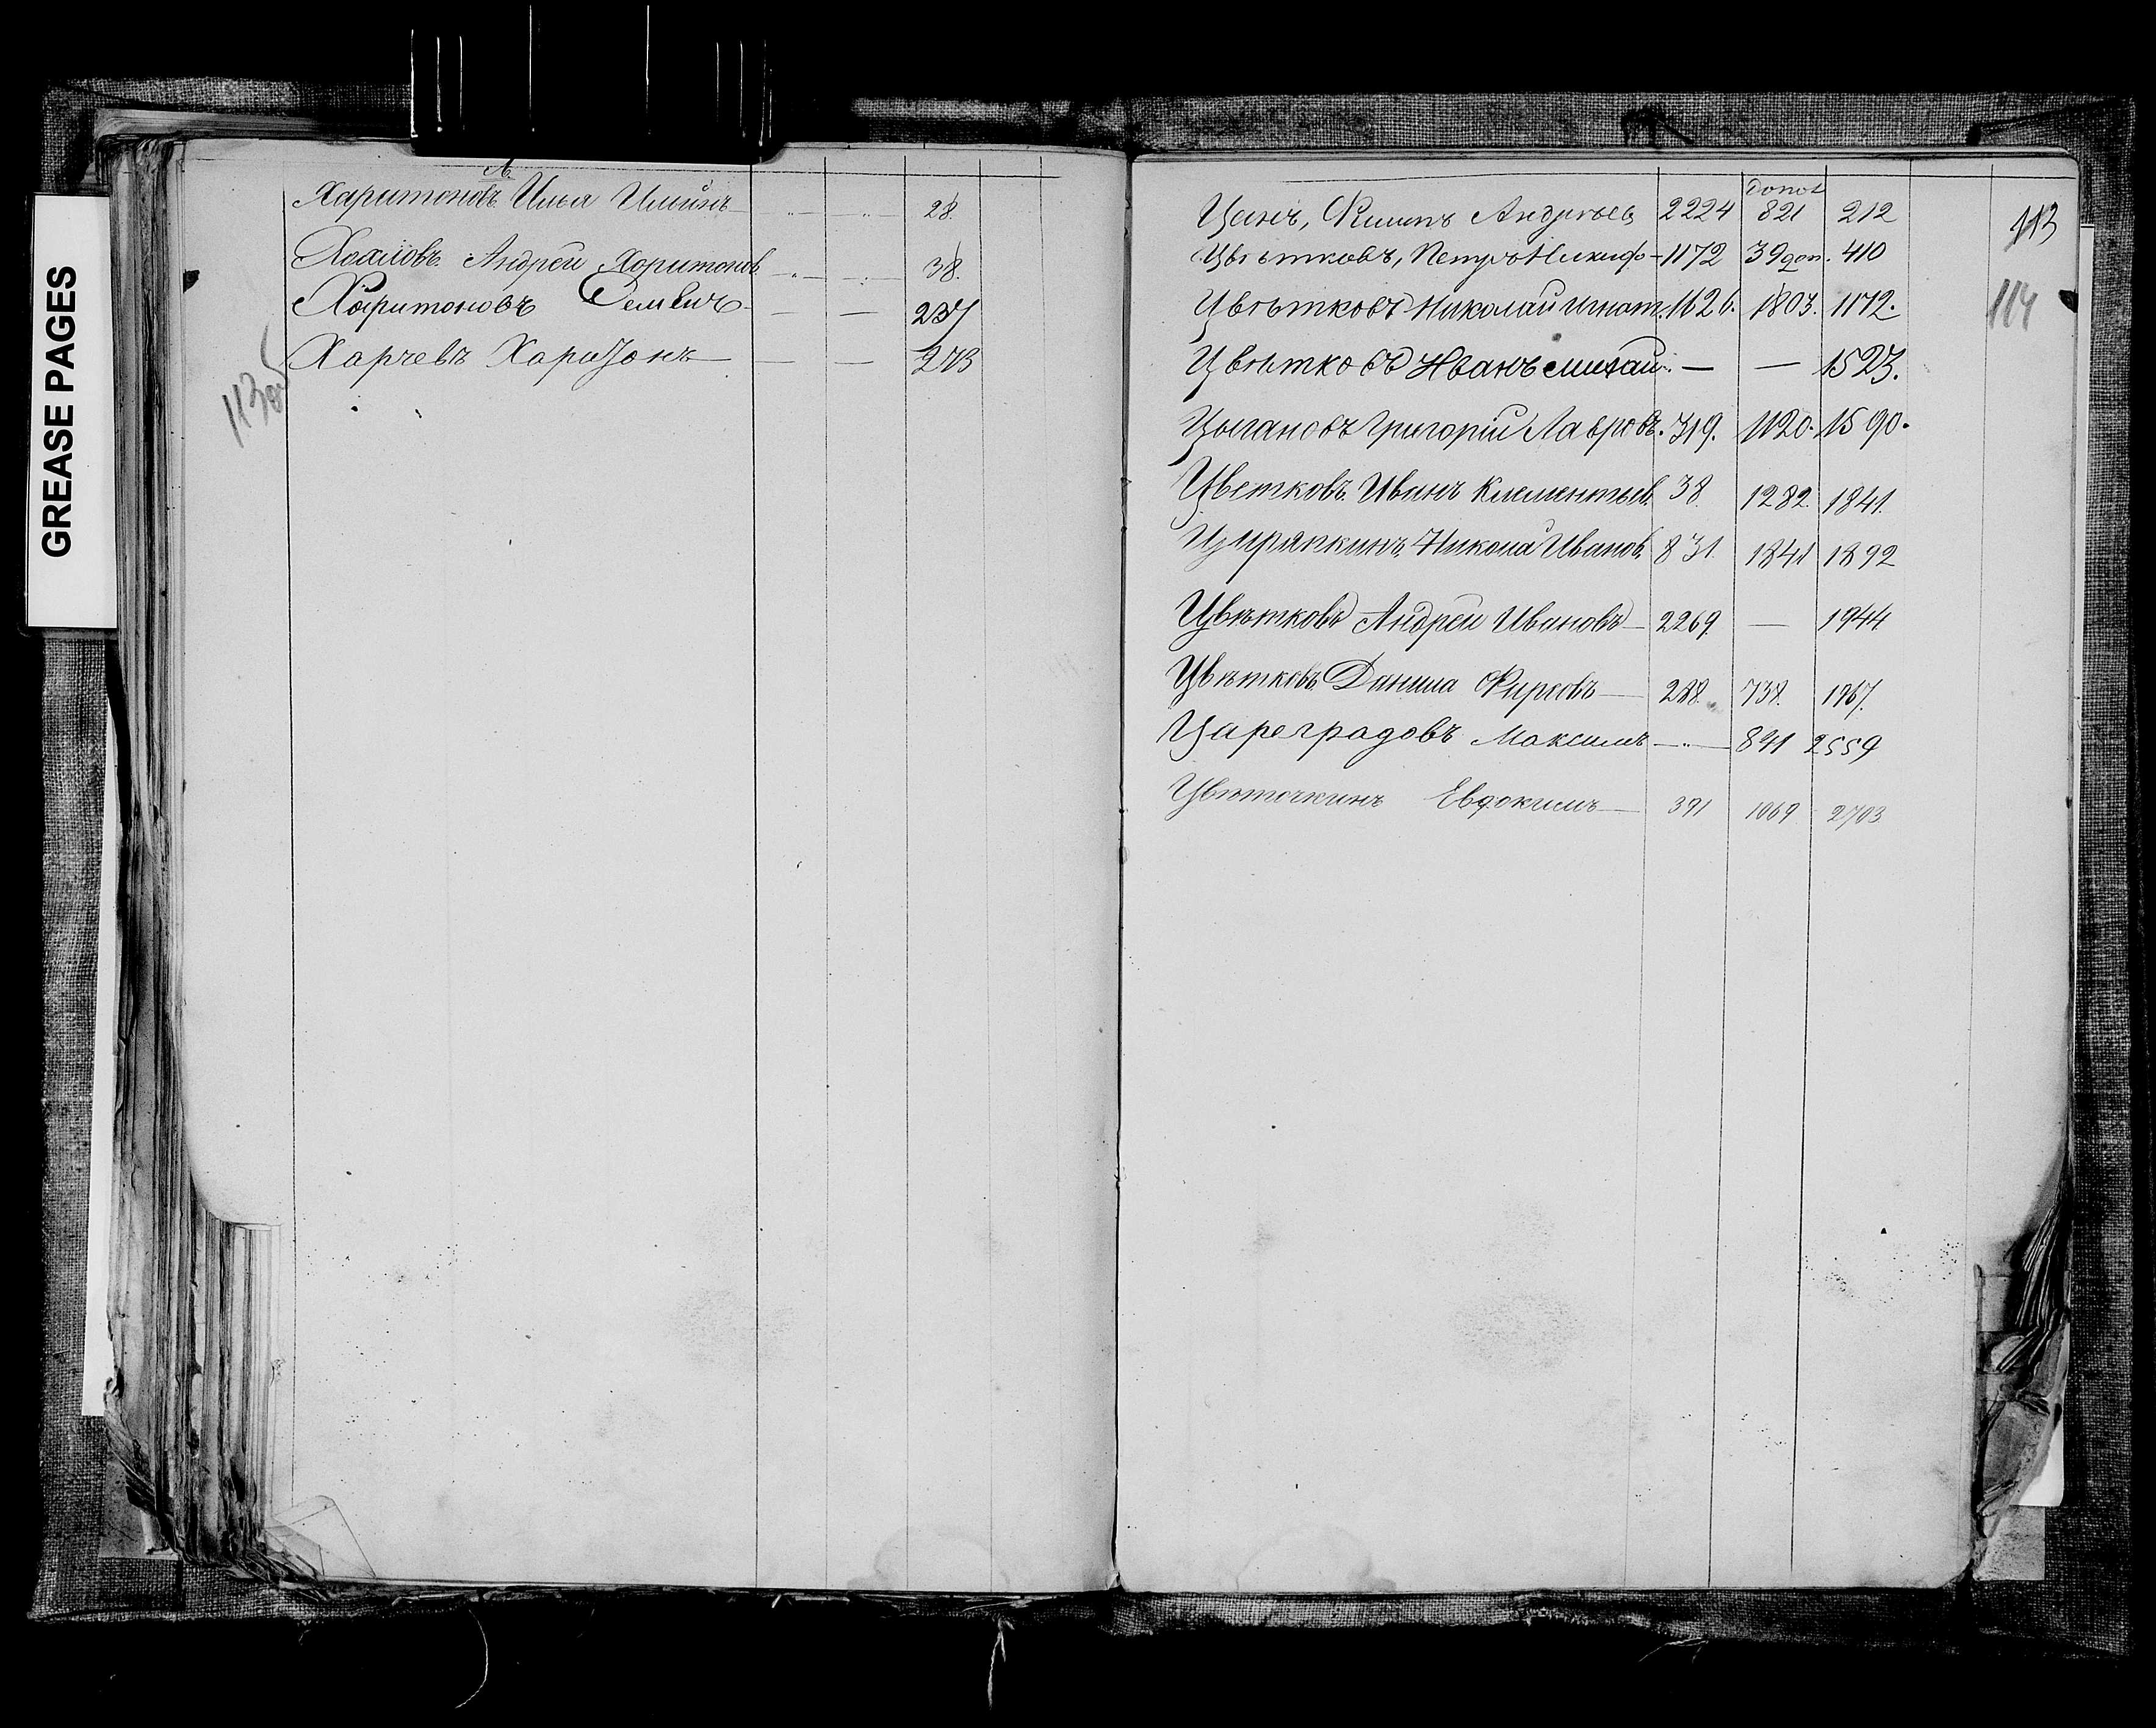 GREASE PAGES
Харитоновъ Илья Ильинъ — „ — „ — 28.
Хохловъ Андрей Харитоновъ — „ — „ — 38.
Харитоновъ — — 237
Харчевъ Харитонъ — — 273
113об
113
114
Допол
Цанъ, Филипъ Андреевъ 2224 821 212
Цвѣтковъ, Петръ Никиф — 1172 39 доп. 410
Цвѣтковъ Николай Игнат. 1626. 1803. 1172.
Цвѣтковъ Иванъ Михай. — — 1523.
Цыгановъ Григорій Лавровъ. 319. 1120. 1590.
Цветковъ Иванъ Клементьев. 38. 1282. 1841.
Никола Иванов. 831. 1841 1892
Цвѣтковъ Андрей Ивановъ — 2269. — 1944
Цвѣтковъ Данила Фирсовъ — 228. 738. 1967.
Цареградовъ Максимъ — „ — 841 2559
Цвѣточкинъ Евдокимъ — 391 1069 2703